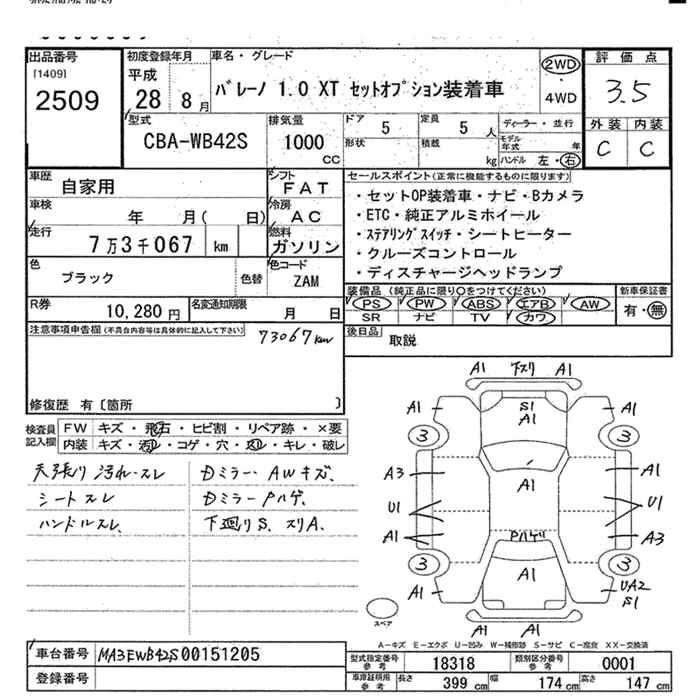 出品番号
[1409]
2509
初度登録年月
平成
28 8月
車名・グレード
バレーノ 1.0 XT セットオプション装着車
2WD
・
4WD
評価点
3.5
外装 内装
C C
型式
CBA-WB42S
排気量
1000
CC
ドア
5
定員
5 人
形状
積載
kg
ディーラー・並行
モデル年式 年
ハンドル 左・右
車歴
自家用
シフト
FAT
車検
年 月( 日)
冷房
AC
走行
7万3千067 km
燃料
ガソリン
色
ブラック
色替
色コード
ZAM
R券
10,280 円
名変通知期限
月 日
セールスポイント(正常に機能するものに限ります)
・セットOP装着車・ナビ・Bカメラ
・ETC・純正アルミホイール
・ステアリングスイッチ・シートヒーター
・クルーズコントロール
・ディスチャージヘッドランプ
装備品(純正品に限り○をつけてください)
PS PW ABS エアB AW
SR ナビ TV カワ
新車保証書
有・無
後日品
取説
注意事項申告欄(不具合内容等は具体的に記入して下さい)
73067km
修復歴 有〔箇所 〕
検査員
記入欄
FW キズ・飛石・ヒビ割・リペア跡・×要
内装 キズ・汚れ・コゲ・穴・スレ・キレ・破レ
天張り汚れ・スレ
シートスレ
ハンドルスレ、
Dミラー・AWキズ、
DミラーPハゲ、
下廻りS、スリA、
A1 下スリ A1
A1 S1 A1
A1
3 3
A3 A1 A1
U1 U1
A1 Pハゲ A3
3 3
A1 A1 UA2
S1
A1
スペア
A-キズ E-エクボ U-凹み W-補修跡 S-サビ C-腐食 XX-交換済
車台番号 MA3EWB42S00151205
登録番号
型式指定番号
参考
18318
類別区分番号
参考
0001
車庫証明用
参考
長さ 399 cm 幅 174 cm 高さ 147 cm